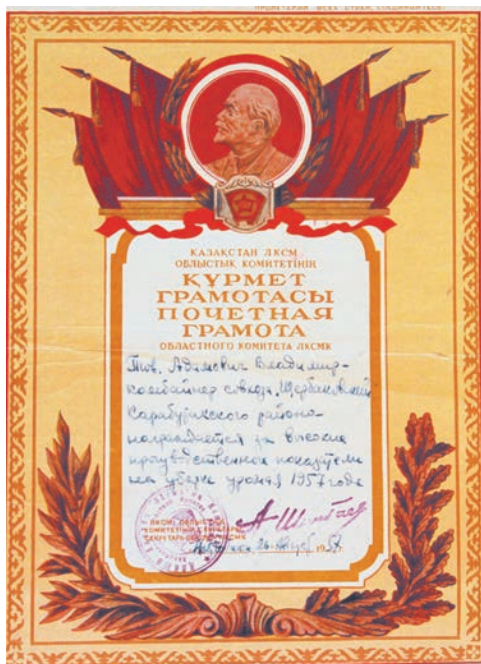 ПРОЛЕТАРИИ ВСЕХ СТРАН, СОЕДИНЯЙТЕСЬ!
КАЗАҚСТАН ЛКСМ
ОБЛЫСТЫҚ КОМИТЕТІНІҢ
ҚҰРМЕТ
ГРАМОТАСЫ
ПОЧЕТНАЯ
ГРАМОТА
ОБЛАСТНОГО КОМИТЕТА ЛКСМК
Тов. Адамович Владимир-
комбайнер совхоза "Щербаковский"
района-
награждается за высокие
производственные показатели
на уборке урожая 1957 года
ЛКСМК ОБЛЫСТЫҚ
КОМИТЕТІНІҢ СЕКРЕТАРЫ
СЕКРЕТАРЬ ЛКСМК
26 195